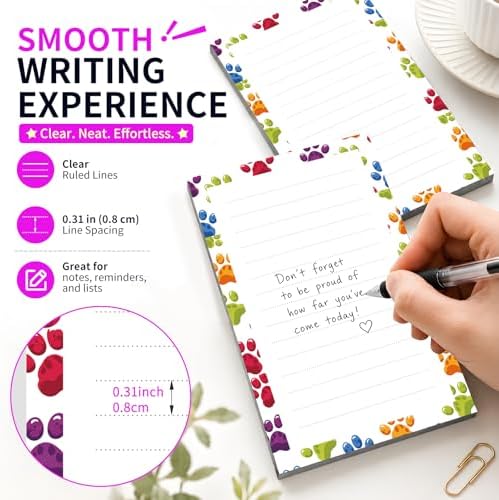 SMOOTH
WRITING
EXPERIENCE
Clear. Neat. Effortless.
Clear
Ruled Lines
0.31 in (0.8 cm)
Line Spacing
Great for
notes, reminders,
and lists
0.31inch
0.8cm
Don't forget
to be proud of
how far you've
come today!